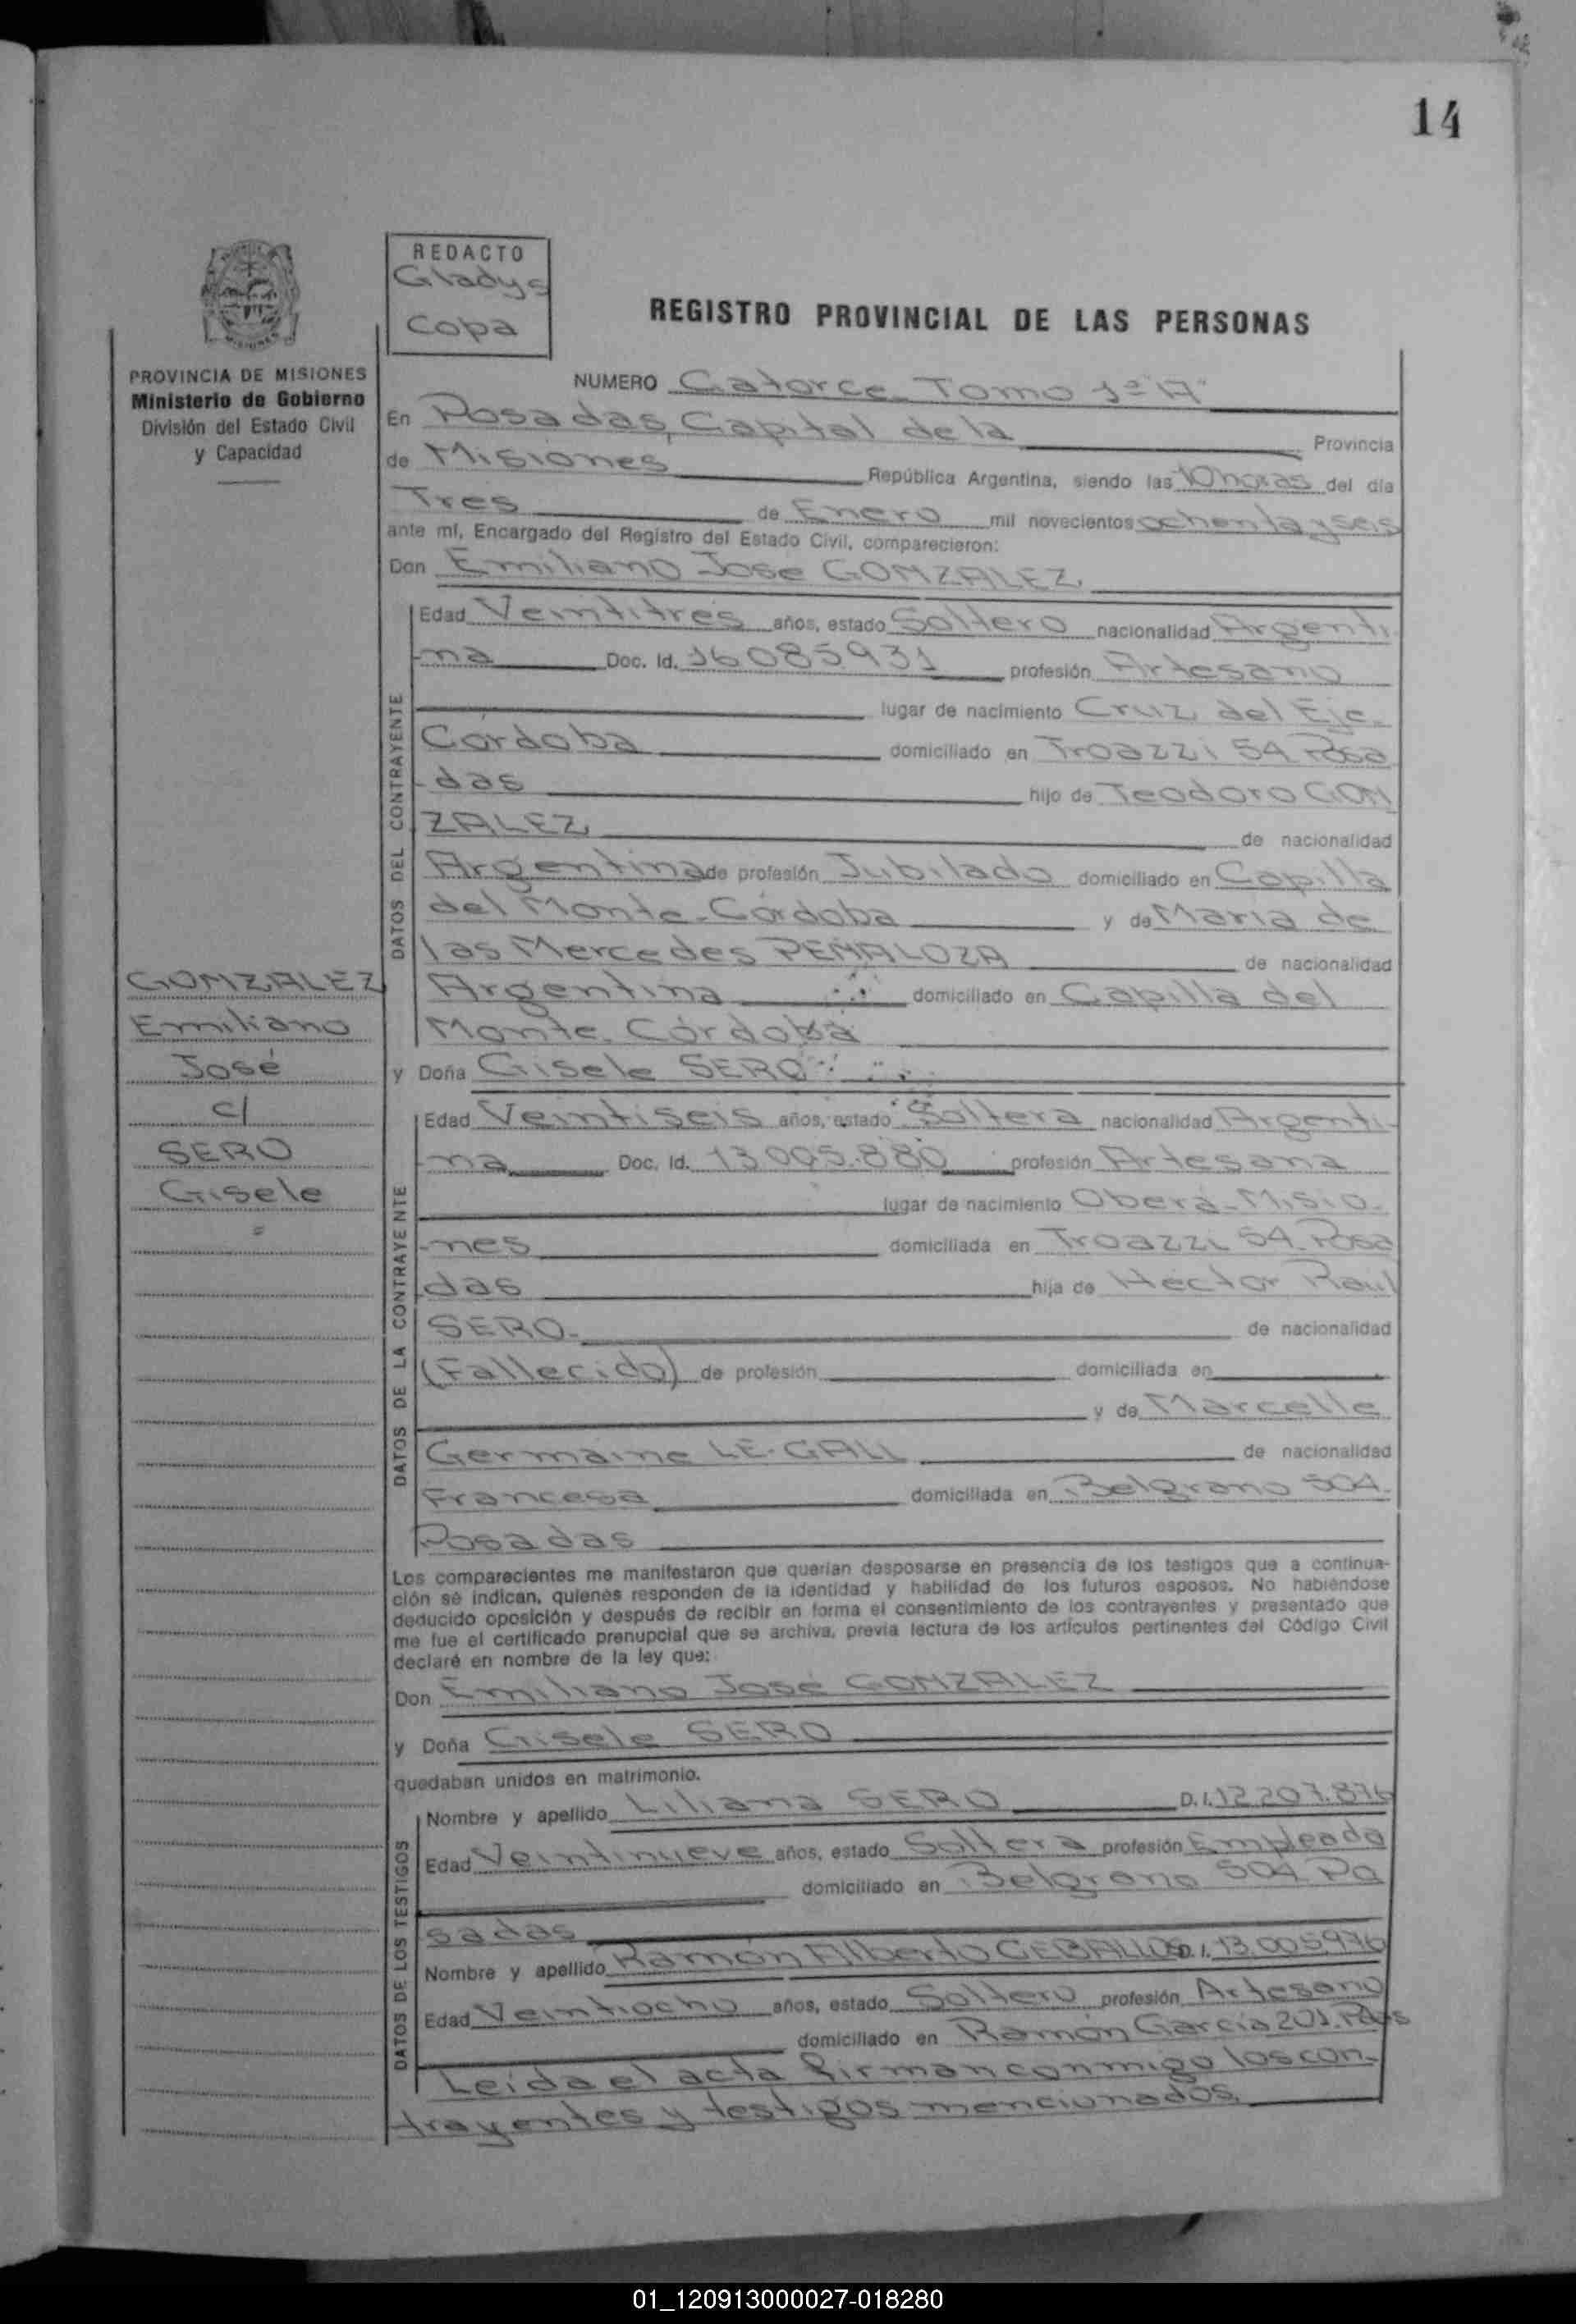 14
REDACTO
Gladys
Copa
REGISTRO PROVINCIAL DE LAS PERSONAS
PROVINCIA DE MISIONES
Ministerio de Gobierno
División del Estado Civil
y Capacidad
NUMERO Catorce Tomo 1º "A"
En Posadas, Capital de la Provincia
de Misiones República Argentina, siendo las 10 horas del día
Tres de Enero mil novecientos ochenta y seis
ante mí, Encargado del Registro del Estado Civil, comparecieron:
Don Emiliano José GONZALEZ
DATOS DEL CONTRAYENTE
Edad Veintitres años, estado Soltero nacionalidad Argenti-
-na Doc. Id. 16.085.931 profesión Artesano
lugar de nacimiento Cruz del Eje-
Córdoba domiciliado en Troazzi 54 Posa
-das hijo de Teodoro GON
ZALEZ de nacionalidad
Argentina de profesión Jubilado domiciliado en Capilla
del Monte-Córdoba y de Maria de
las Mercedes PEÑALOZA de nacionalidad
Argentina domiciliado en Capilla del
Monte. Córdoba
y Doña Gisele SERO
GONZALEZ
Emiliano
José
c/
SERO
Gisele
DATOS DE LA CONTRAYENTE
Edad Veintiseis años, estado Soltera nacionalidad Argenti-
-na Doc. Id. 13.005.880 profesión Artesana
lugar de nacimiento Oberá-Misio-
-nes domiciliada en Troazzi 54. Posa
das hija de Héctor Raul
SERO de nacionalidad
(Fallecido) de profesión domiciliada en
y de Marcelle
Germaine LE-GALL de nacionalidad
Francesa domiciliada en Belgrano 504.
Posadas
Los comparecientes me manifestaron que querían desposarse en presencia de los testigos que a continua-
ción se indican, quienes responden de la identidad y habilidad de los futuros esposos. No habiéndose
deducido oposición y después de recibir en forma el consentimiento de los contrayentes y presentado que
me fue el certificado prenupcial que se archiva, previa lectura de los artículos pertinentes del Código Civil
declaré en nombre de la ley que:
Don Emiliano José GONZALEZ
y Doña Gisele SERO
quedaban unidos en matrimonio.
DATOS DE LOS TESTIGOS
Nombre y apellido Liliana SERO D.I. 12.207.876
Edad Veintinueve años, estado Soltera profesión Empleada
domiciliado en Belgrano 504 Po
sadas
Nombre y apellido Ramón Alberto CEBALLOS D.I. 13.005976
Edad Veintiocho años, estado Soltero profesión Artesano
domiciliado en Ramón García 201. Pdas
Leída el acta firman conmigo los con-
trayentes y testigos mencionados.
01_120913000027-018280